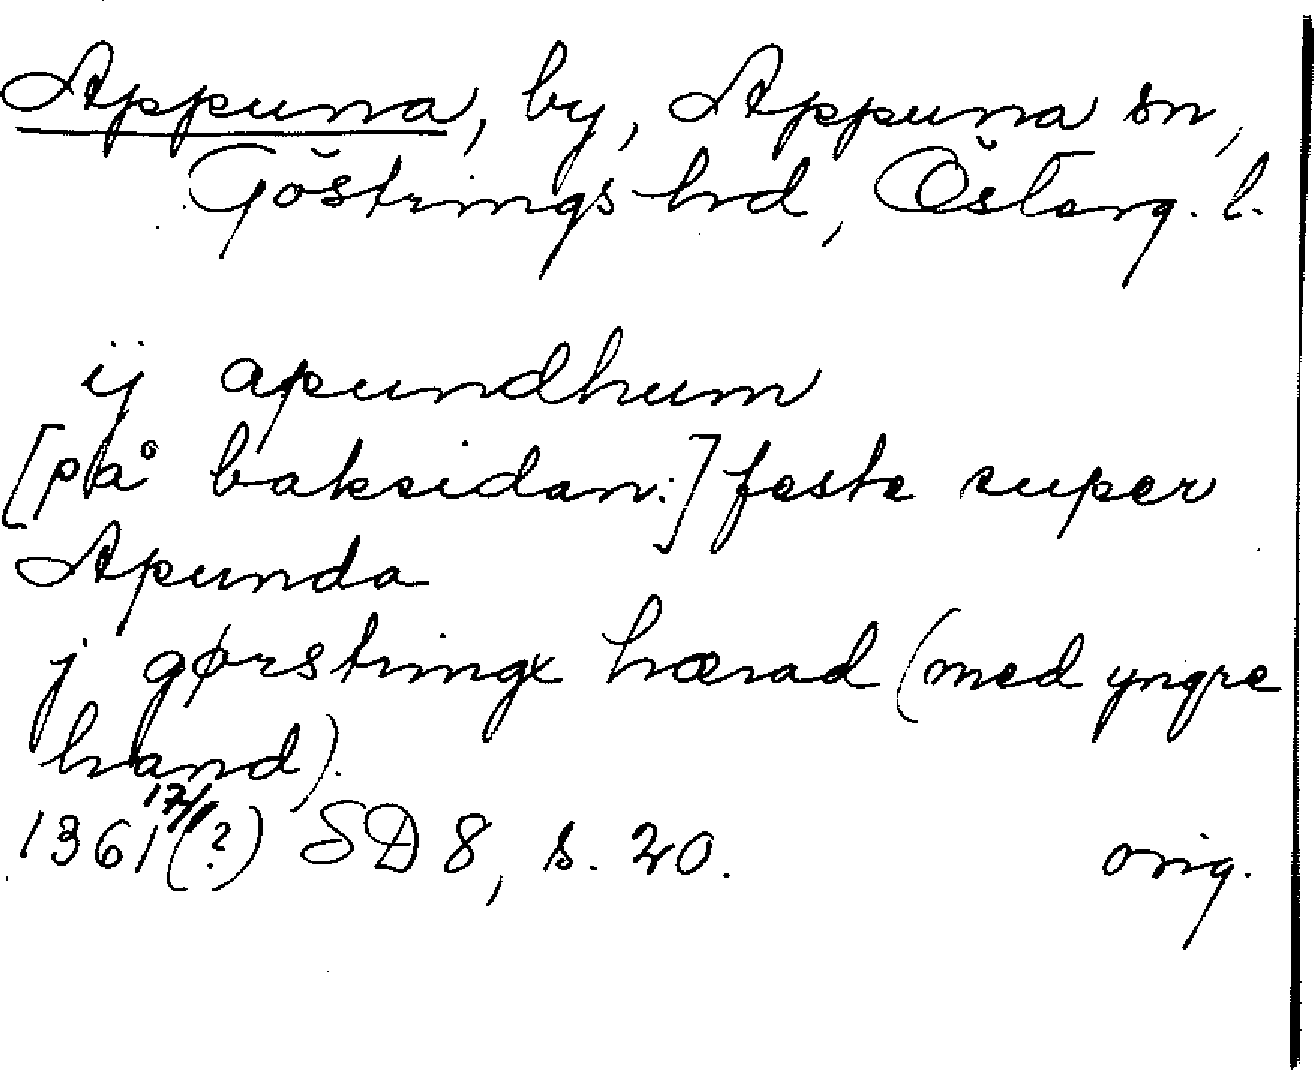 Appuna, by, Appuna sn,
Göstrings hd, Österg. l.
ij apundhum
[på baksidan:] faste super
Apunda
j gørstringx hærad (med yngre
hand).
1361 17/1 (?) SD 8, s. 20. orig.